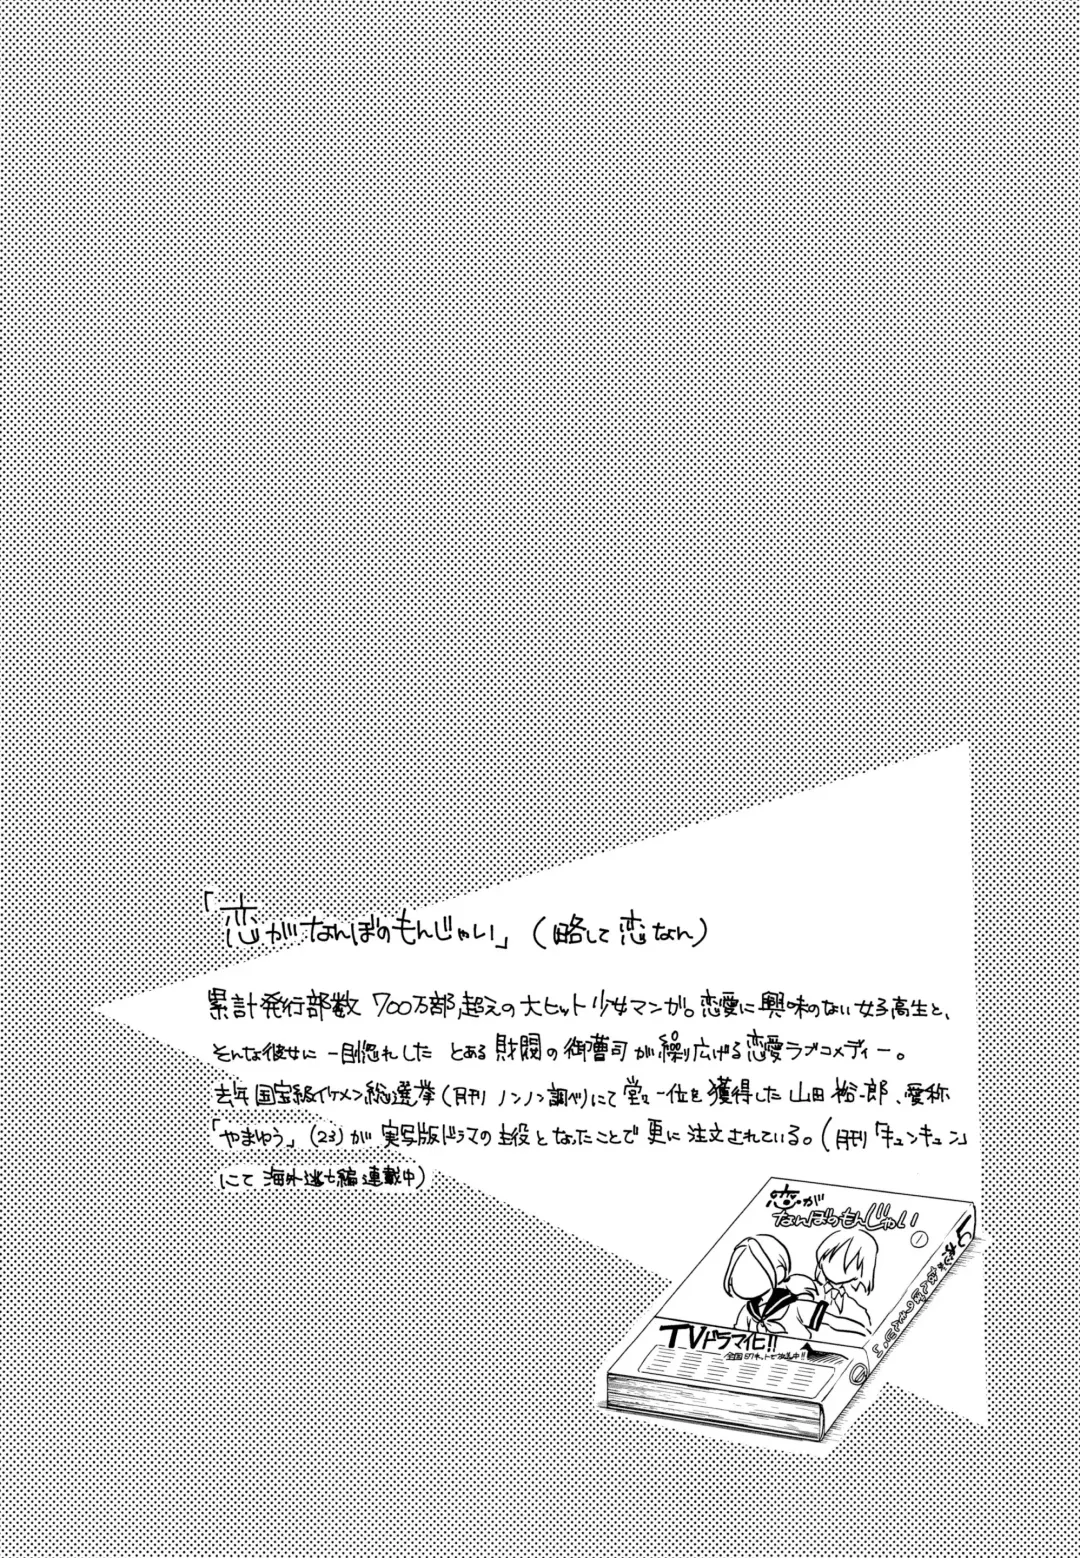 「恋がなんぼのもんじゃい」(略して恋なん)
累計発行部数 700万部超えの大ヒット少女マンガ。恋愛に興味のない女子高生と、
そんな彼女に一目惚れした とある財閥の御曹司が繰り広げる恋愛ラブコメディー。
去年国宝級イケメン総選挙(月刊ノンノン調べ)にて堂々一位を獲得した山田裕一郎、愛称
「やまゆう」(23)が実写版ドラマの主役となったことで更に注文されている。(月刊「キュンキュン」
にて海外逃亡編連載中)
恋が
なんぼのもんじゃい
1
TVドラマ化!!